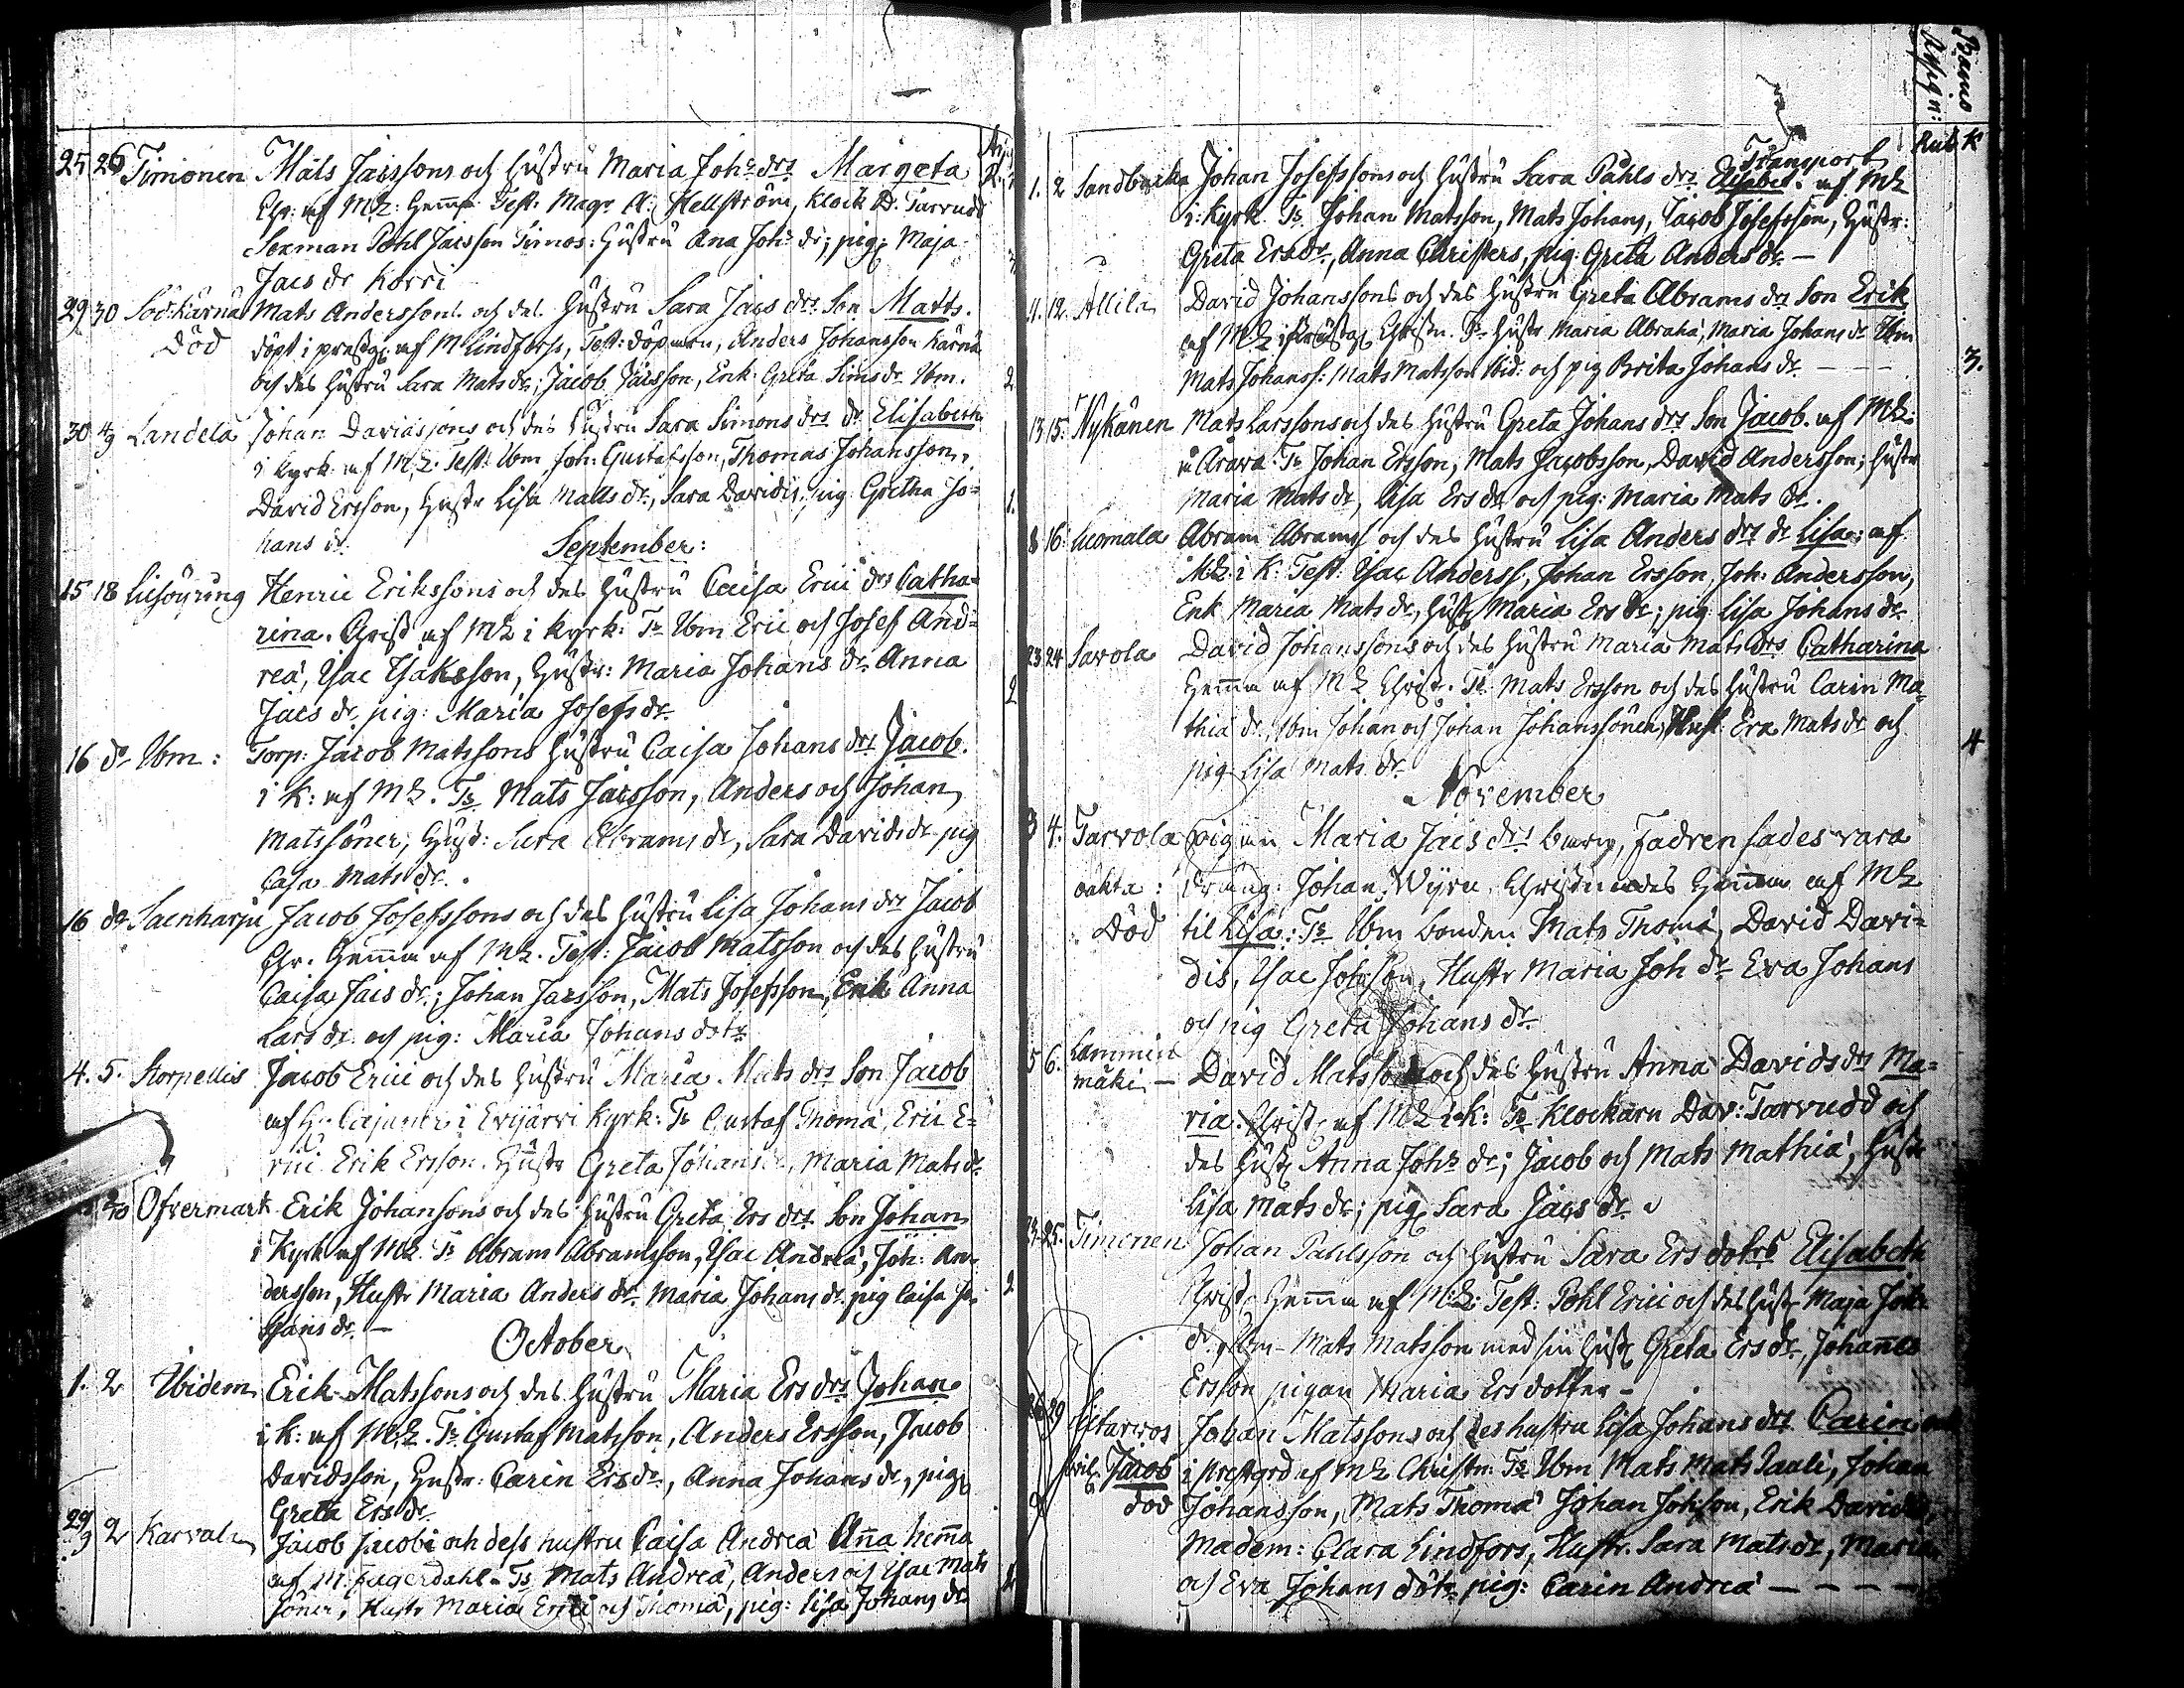 25 26 Timonen Mats Jacssons och hustru Maria Johs drs Margeta
Chr: af MZ: hema Test: Magr A: Hellström, Klock D. Tarvudd
Sexman Påhl Jacsson Simos: hustru Ana Johs dr; pig: Maja
Jacs dr Korri
29 30 Söd:kärnä Mats Anderssons och des hustru Sara Jacs drs Son Matts.
Död döpt i prestg: af M Lindforss, Test: döparen, Anders Johansson Kärnä
och des hustru Sara Mats dr; Jacob Jacsson, Enk: Greta Sims dr Ibm. 2
30 4/9 Landela Johan Davidssons och des hustru Sara Simons drs dr Elisabeth
i kyrk: af MZ. Test: Ibm Joh: Gustafsson, Thomas Johansson,
David Ersson, hustr Lisa Matts dr, Sara Davidis, pig: Gretha Jo= 1.
hans dr.
September:
15 18 Henric Erikssons och des hustru Caisa Erici drs Catha=
rina. Christ af MZ i kyrk: Ts Ibm Eric och Josef And=
reä, Ysac Ysaksson, hustr: Maria Johans dr Anna
Jacs dr, pig: Maria Josefs dr. 2
16 do Ibm: Torp: Jacob Matssons hustru Caisa Johans drs Jacob.
i K: af MZ. Ts Mats Jacsson, Anders och Johan
Matssöner, hust: Sara Abrams dr, Sara Davids dr pig
Casa Mats dr.
16 do Saenharju Jacob Josefssons och des hustru Lisa Johans drs Jacob
Chr. hema af MZ. Test: Jacob Matsson och des hustru
Caisa Jacs dr; Johan Jacsson, Mats Josefsson, Enk Anna
Lars dr och pig: Maria Johans dotr
4. 5. Storpellis Jacob Erici och des hustru Maria Mats drs Son Jacob
af Hr i Evijärvi kyrk: Ts Gustaf Thomä, Eric E=
rici Erik Ersson. hustr Greta Johans dr, Maria Mats dr
Ofvermark Erik Johansons och des hustru Greta Ers drs Son Johan
i Kyrk af MZ. Ts Abram Abramsson, Ysac Andreä, Joh: An=
dersson, Hustr Maria Anders dr Maria Johans dr pig Caisa Jo= 2
hans dr. —
October
1. 2 Ibidem Erik Matssons och des hustru Maria Ers drs Johan
i K: af MZ. Ts Gustaf Matsson, Anders Ersson, Jacob
Davidsson, hustr: Carin Ers dr, Anna Johans dr, pig
Greta Ers dr
29/9 2 Karvala Jacob Jacobi och dess hustru Caisa Andreä Anna hema
af M. Fagerdahl. Ts Mats Andreä, Anders och Ysac Mats
söner, Hustr Maria Erici och Thomä, pig: Lisa Johans dr
Rub k
Transport
1. 2 Sandbacka Johan Josefssons och hustru Sara Påhls drs Elisabet. af MZ
i: kyrk. Ts Johan Matsson, Mats Johans, Jacob Josefsson, hustr:
Greta Ers dr, Anna Christers, pig: Greta Anders dr. —
11. 12. Allila David Johanssons och des hustru Greta Abrams drs Son Erik
af MZ i prästg Christn. Ts hustr Maria Abrahä, Maria Johans dr Ibm
Mats Johanss: Mats Matsson Ibid: och pig Brita Johans dr — — — 3.
13 15. Nykänen Mats Larssons och des hustru Greta Johans drs Son Jacob. af MZ
Ts Johan Ersson, Mats Jacobsson, David Andersson; hustr
Maria Mats dr, Lisa Ers dr och pig: Maria Mats dr.
8 16. Luomala Abram Abrams och des hustru Lisa Anders drs dr Lisa: af
MZ i K: Test: Ysac Anderss, Johan Ersson, Joh: Andersson,
Enk Maria Mats dr, hust Maria Ers dr; pig Lisa Johans dr
23 24 Savola David Johanssons och des hustru Maria Mats drs Catharina
hema af MZ Christ. Ts Mats Ersson och des hustru Carin Ma=
thiä dr, Ibm Johan och Johan Johanssöner, Hust: Eva Mats dr och 4
pig: Lisa Mats dr
November
3 4. Tarvola pigan Maria Jacs drs barn, Fadren sades vara
Dräng: Johan Wyru, Christnades hemma af MZ
Död til Lisa: Ts Ibm bonden Mats Thomä, David Davi=
dis, Ysac Johsson, Hustr Maria Joh dr Eva Johans
och pig Greta Johans dr
5 6. Lammin
mäki — David Matssons och des hustru Anna Davids drs Ma=
ria. Christ af MZ i K: Ts Klockarn Dav: Tarvudd och
des hust Anna Johs dr; Jacob och Mats Mathiä, hustr
Lisa Mats dr; pig Sara Jacs dr.
25. Timonen Johan Påhlsson och hustru Sara Ers dotrs Elisabeth
Christ hema af MZ: Test: Påhl Erici och des hust Maja Joh
dr, Ibm — Mats Matsson med sin hust Greta Ers dr, Johannes
Ersson pigan Maria Ers dotter —
29 Johan Matssons och des hustru Lisa Johans drs Carin
Jacob i prestgrd af MZ Christn: Ts Ibm Mats Mats Johan
död Johansson, Mats Thomä Johan Johsson, Erik Davids,
Madem: Clara Lindfors, Hustr. Sara Mats dr, Maria
och Eva Johans dötr pig: Carin Andreä — — — —